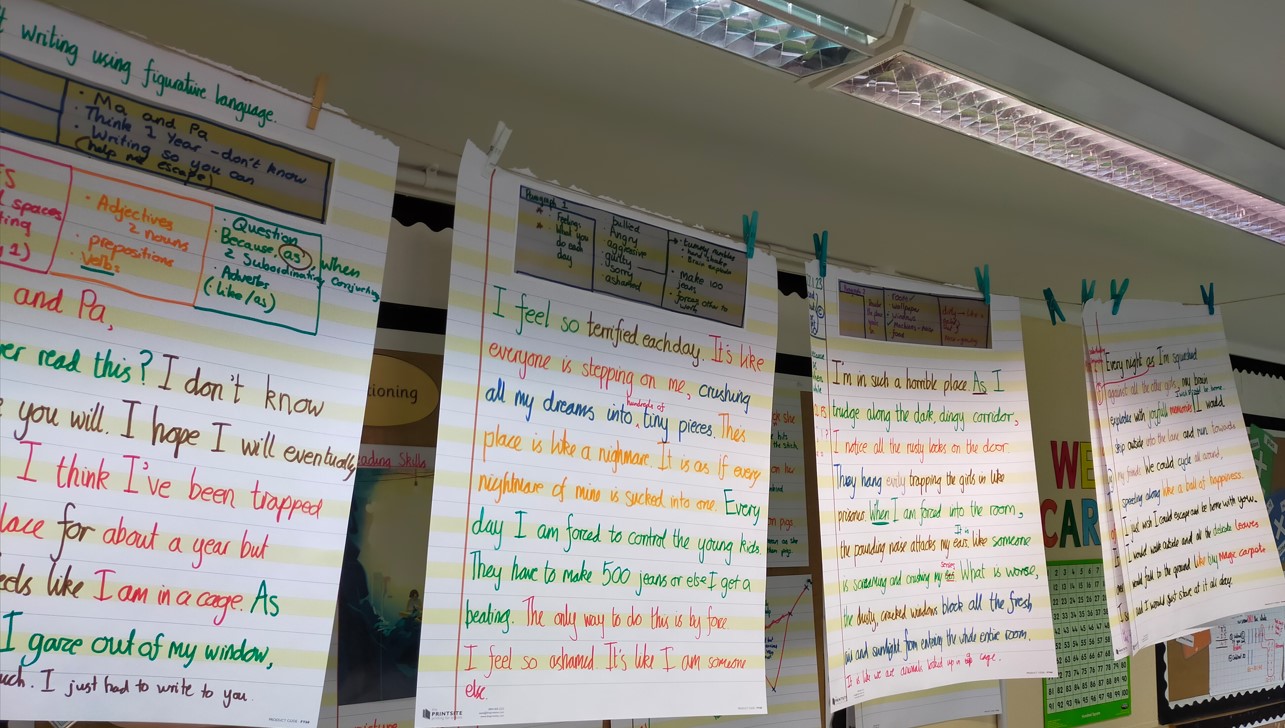 writing using figurative language.
· Ma and Pa
· Think 1 year - don't know
· Writing so you can
(help me escape)
spaces
· Adjectives
2 nouns
· prepositions
· Verbs
· Question
Because, as, when
2 Subordinating
· Adverbs
(· Like/as)
and Pa,
read this? I don't know
you will. I hope I will eventually
I think I've been trapped
for about a year but
like I am in a cage. As
I gaze out of my window,
I just had to write to you.
tioning
Skills
Paragraph 1
Feelings.
What you
do each
day
bullied
Angry
aggressive
guilty
sorry
ashamed
make 100
jeans
forcing other to
work
I feel so terrified eachday. It's like
everyone is stepping on me, crushing
hundreds of
all my dreams into tiny pieces. This
place is like a nighmare. It is as if every
nightmare of mine is sucked into one. Every
day I am forced to control the young kids.
They have to make 500 jeans or else I get a
beating. The only way to do this is by force.
I feel so ashamed. It's like I am someone
else.
PRINTSITE
wallpaper
windows
I'm in such a horrible place. As I
trudge along the dark, dingy corridor,
I notice all the rusty locks on the door.
They hang evily trapping the girls in like
prisoners. When I am forced into the room,
It is
the pounding noise attacks my ears, like someone
is screaming and crushing my What is worse,
the dusty, cracked windows block all the fresh
air and sunlight from entering the whole entire room.
It is like we are animals locked up in a cage.
WE
CAR
Every night as I'm squashed
against all the other girls, my brain
explodes with joyfull memories. I would
skip outside into the lane and run towards
my friends. We could cycle all around,
speeding along like a ball of happiness.
I just wish I could escape and be home with you.
I would walk outside and all the delicate leaves
would fall to the ground like tiny magic carpets
and I would just stare at it all day.